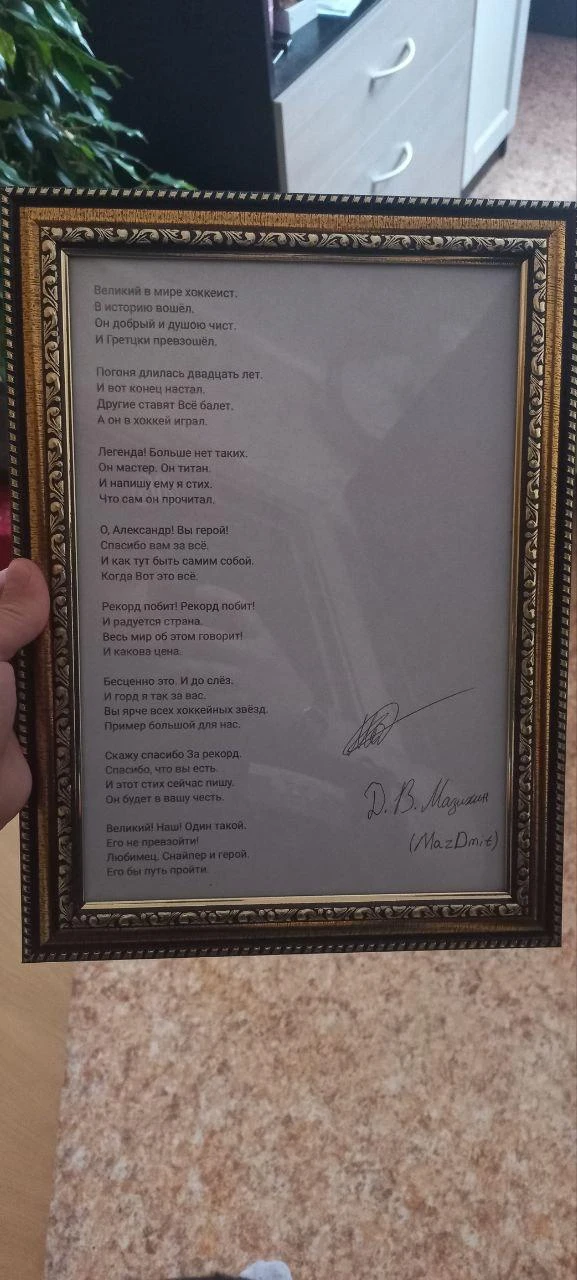 Великий в мире хоккеист.
В историю вошёл.
Он добрый и душою чист.
И Гретцки превзошёл.
Погоня длилась двадцать лет.
И вот конец настал.
Другие ставят Всё балет.
А он в хоккей играл.
Легенда! Больше нет таких.
Он мастер. Он титан.
И напишу ему я стих.
Что сам он прочитал.
О, Александр! Вы герой!
Спасибо вам за всё.
И как тут быть самим собой.
Когда Вот это всё.
Рекорд побит! Рекорд побит!
И радуется страна.
Весь мир об этом говорит!
И какова цена.
Бесценно это. И до слёз.
И горд я так за вас.
Вы ярче всех хоккейных звёзд.
Пример большой для нас.
Скажу спасибо За рекорд.
Спасибо, что вы есть.
И этот стих сейчас пишу.
Он будет в вашу честь.
Великий! Наш! Один такой.
Его не превзойти!
Любимец. Снайпер и герой.
Его бы путь пройти.
Д. В. Мазихин
(MazDmit)